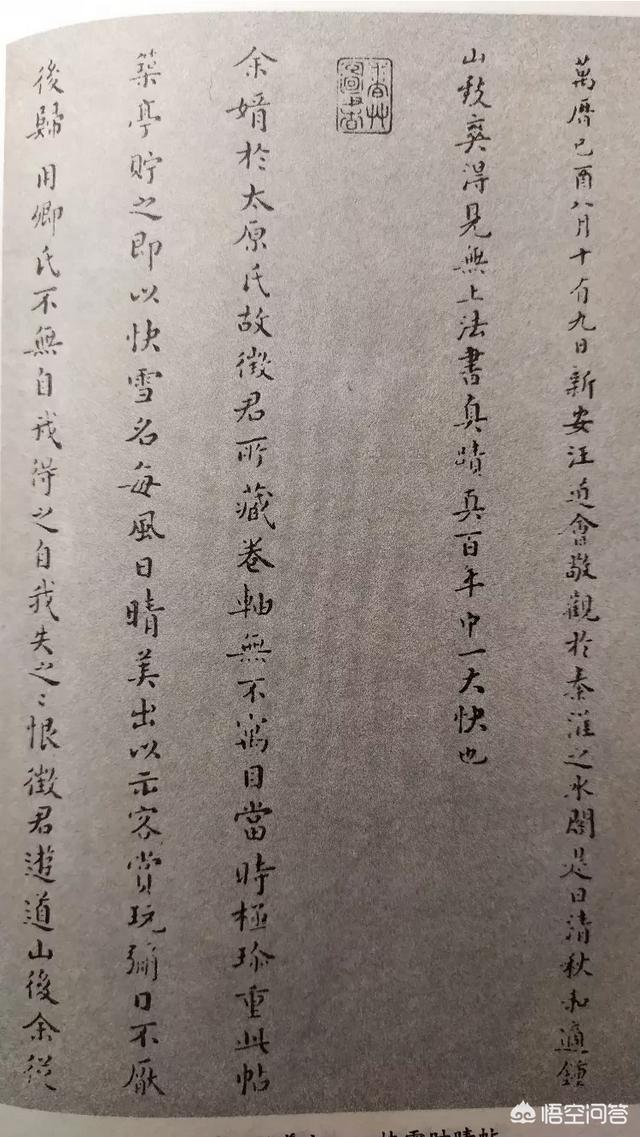 萬曆己酉八月十有九日新安汪道會敬觀於秦淮之水閣是日清秋和適鍾
山致爽得見無上法書真蹟真百年中一大快也
余婿於太原氏故徵君所藏卷軸無不寓目當時極珍重此帖
築亭貯之即以快雪名每風日晴美出以示客賞玩彌日不厭
後歸用卿氏不無自我得之自我失之之恨徵君遊道山後余從
悟空问答